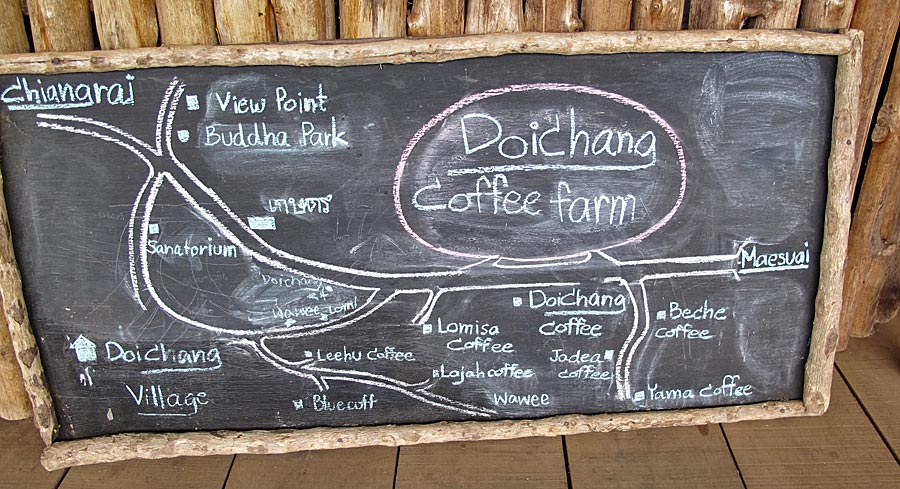 Chiangrai
View Point
Buddha Park
Doichang
Coffee farm
Sanatorium
Maesuai
Doichang
Wawee
Doichang
coffee
Beche
coffee
Lomisa
coffee
Jadea
coffee
Doichang
Village
Leehu coffee
Lajah coffee
Bluecoff
Wawee
Yama coffee